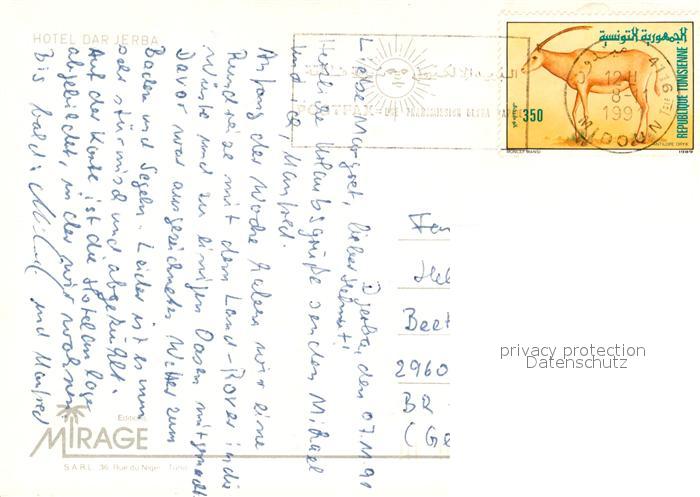 HOTEL DAR JERBA
Djerba, den 07.11.91
Liebe Margret, lieber Helmut!
Herzliche Urlaubsgrüße senden Michael
und Manfred.
Anfang der Woche haben wir eine
Rundreise mit dem Land-Rover in die
Wüste und zu einigen Oasen mitgemacht.
Davor war ausgezeichnetes Wetter zum
Baden und Segeln. Leider ist es nun
sehr stürmisch und abgekühlt.
Auf der Karte ist die Hotelanlage
abgebildet, in der wir wohnen.
Bis bald! Michael und Manfred
Editions
MIRAGE
S.A.R.L. 36, Rue du Niger - Tunis
الجمهورية التونسية
REPUBLIQUE TUNISIENNE
350
ANTILOPE ORYX
1989
4116
MIDOUN
12H
8
199
POSTFAX
UNE TRANSMISSION ULTRA RAPIDE
Fam
Hel
Beet
2960
BR
(Ge
privacy protection
Datenschutz